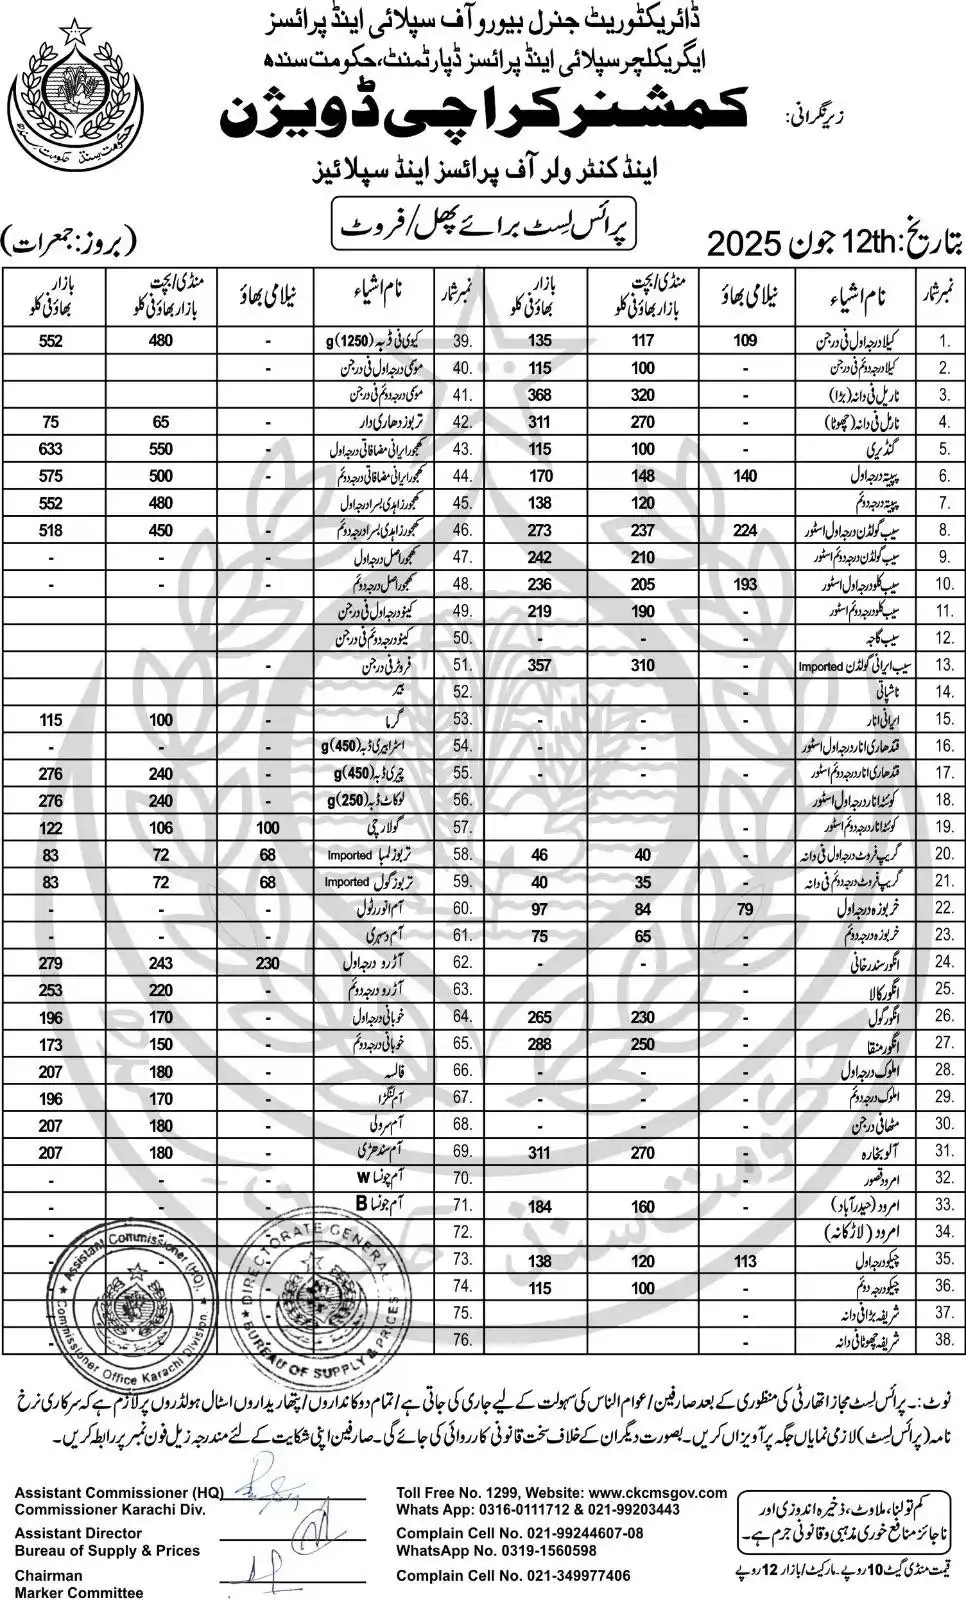 ڈائریکٹوریٹ جنرل بیورو آف سپلائی اینڈ پرائسز
ایگریکلچر سپلائی اینڈ پرائسز ڈپارٹمنٹ، حکومت سندھ
زیر نگرانی: کمشنر کراچی ڈویژن
اینڈ کنٹرولر آف پرائسز اینڈ سپلائیز
پرائس لسٹ برائے پھل/فروٹ
بتاریخ: 12th جون 2025 (بروز: جمعرات)
نمبر شمار نام اشیاء نیلامی بھاؤ منڈی/بچت بازار بھاؤ فی کلو بازار بھاؤ فی کلو
1. کیلا درجہ اول فی درجن 109 117 135
2. کیلا درجہ دوئم فی درجن - 100 115
3. ناریل فی دانہ (بڑا) - 320 368
4. ناریل فی دانہ (چھوٹا) - 270 311
5. گنڈیری - 100 115
6. پپیتہ درجہ اول 140 148 170
7. پپیتہ درجہ دوئم - 120 138
8. سیب گولڈن درجہ اول اسٹور 224 237 273
9. سیب گولڈن درجہ دوئم اسٹور - 210 242
10. سیب کلو درجہ اول اسٹور 193 205 236
11. سیب کلو درجہ دوئم اسٹور - 190 219
12. سیب گاجہ - - -
13. سیب ایرانی گولڈن Imported - 310 357
14. ناشپاتی -
15. ایرانی انار - - -
16. قندھاری انار درجہ اول اسٹور - - -
17. قندھاری انار درجہ دوئم اسٹور - - -
18. کوئٹہ انار درجہ اول اسٹور -
19. کوئٹہ انار درجہ دوئم اسٹور -
20. گریپ فروٹ درجہ اول فی دانہ - 40 46
21. گریپ فروٹ درجہ دوئم فی دانہ - 35 40
22. خربوزہ درجہ اول 79 84 97
23. خربوزہ درجہ دوئم - 65 75
24. انگور سندرخانی - - -
25. انگور کالا -
26. انگور گول - 230 265
27. انگور منقا - 250 288
28. املوک درجہ اول - - -
29. املوک درجہ دوئم - - -
30. مٹھا فی درجن - - -
31. آلو بخارہ - 270 311
32. امرود قصور -
33. امرود (حیدرآباد) - 160 184
34. امرود (لاڑکانہ) -
35. چیکو درجہ اول 113 120 138
36. چیکو درجہ دوئم - 100 115
37. شریفہ بڑا فی دانہ -
38. شریفہ چھوٹا فی دانہ -
نمبر شمار نام اشیاء نیلامی بھاؤ منڈی/بچت بازار بھاؤ فی کلو بازار بھاؤ فی کلو
39. کیوی فی ڈبہ g(1250) - 480 552
40. موسمی درجہ اول فی درجن -
41. موسمی درجہ دوئم فی درجن
42. تربوز دھاری دار - 65 75
43. کھجور ایرانی مضافاتی درجہ اول - 550 633
44. کھجور ایرانی مضافاتی درجہ دوئم - 500 575
45. کھجور زاہدی بسرا درجہ اول - 480 552
46. کھجور زاہدی بسرا درجہ دوئم - 450 518
47. کھجور اصل درجہ اول - - -
48. کھجور اصل درجہ دوئم - - -
49. کینو درجہ اول فی درجن -
50. کینو درجہ دوئم فی درجن -
51. فروٹر فی درجن -
52. بیر
53. گرما - 100 115
54. اسٹرابیری ڈبہ g(450) - - -
55. چیری ڈبہ g(450) - 240 276
56. لوکاٹ ڈبہ g(250) - 240 276
57. گولارچی 100 106 122
58. تربوز لمبا Imported 68 72 83
59. تربوز گول Imported 68 72 83
60. آم انور رٹول - - -
61. آم دسہری - - -
62. آڑو درجہ اول 230 243 279
63. آڑو درجہ دوئم - 220 253
64. خوبانی درجہ اول - 170 196
65. خوبانی درجہ دوئم - 150 173
66. فالسہ - 180 207
67. آم لنگڑا - 170 196
68. آم سرولی - 180 207
69. آم سندھڑی - 180 207
70. آم چونسا W - - -
71. آم چونسا B - - -
72.
73.
74.
75.
76.
Assistant Commissioner (HQ)
Commissioner Office Karachi Division.
DIRECTORATE GENERAL
BUREAU OF SUPPLY & PRICES
نوٹ:۔ پرائس لسٹ مجاز اتھارٹی کی منظوری کے بعد صارفین/عوام الناس کی سہولت کے لیے جاری کی جاتی ہے/تمام دوکانداروں/پتھاریداروں اسٹال ہولڈروں پر لازم ہے کہ سرکاری نرخ
نامہ (پرائس لسٹ) لازمی نمایاں جگہ پر آویزاں کریں۔ بصورت دیگر ان کے خلاف سخت قانونی کارروائی کی جائے گی۔ صارفین اپنی شکایت کے لئے مندرجہ زیل فون نمبر پر رابطہ کریں۔
Assistant Commissioner (HQ)
Commissioner Karachi Div.
Assistant Director
Bureau of Supply & Prices
Chairman
Marker Committee
Toll Free No. 1299, Website: www.ckcmsgov.com
Whats App: 0316-0111712 & 021-99203443
Complain Cell No. 021-99244607-08
WhatsApp No. 0319-1560598
Complain Cell No. 021-349977406
کم تولنا، ملاوٹ، ذخیرہ اندوزی اور
ناجائز منافع خوری مذہبی و قانونی جرم ہے۔
قیمت منڈی گیٹ 10 روپے۔ مارکیٹ/بازار 12 روپے